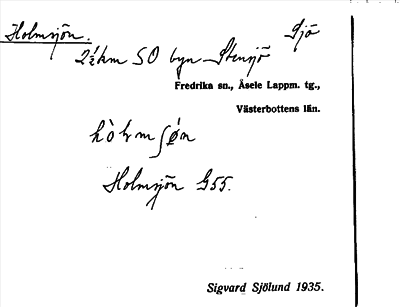 Holmsjön. Sjö
2½ km SO byn Stensjö
Fredrika sn., Åsele Lappm. tg.,
Västerbottens län.
hòlmʃǿn
Holmsjön G55.
Sigvard Sjölund 1935.